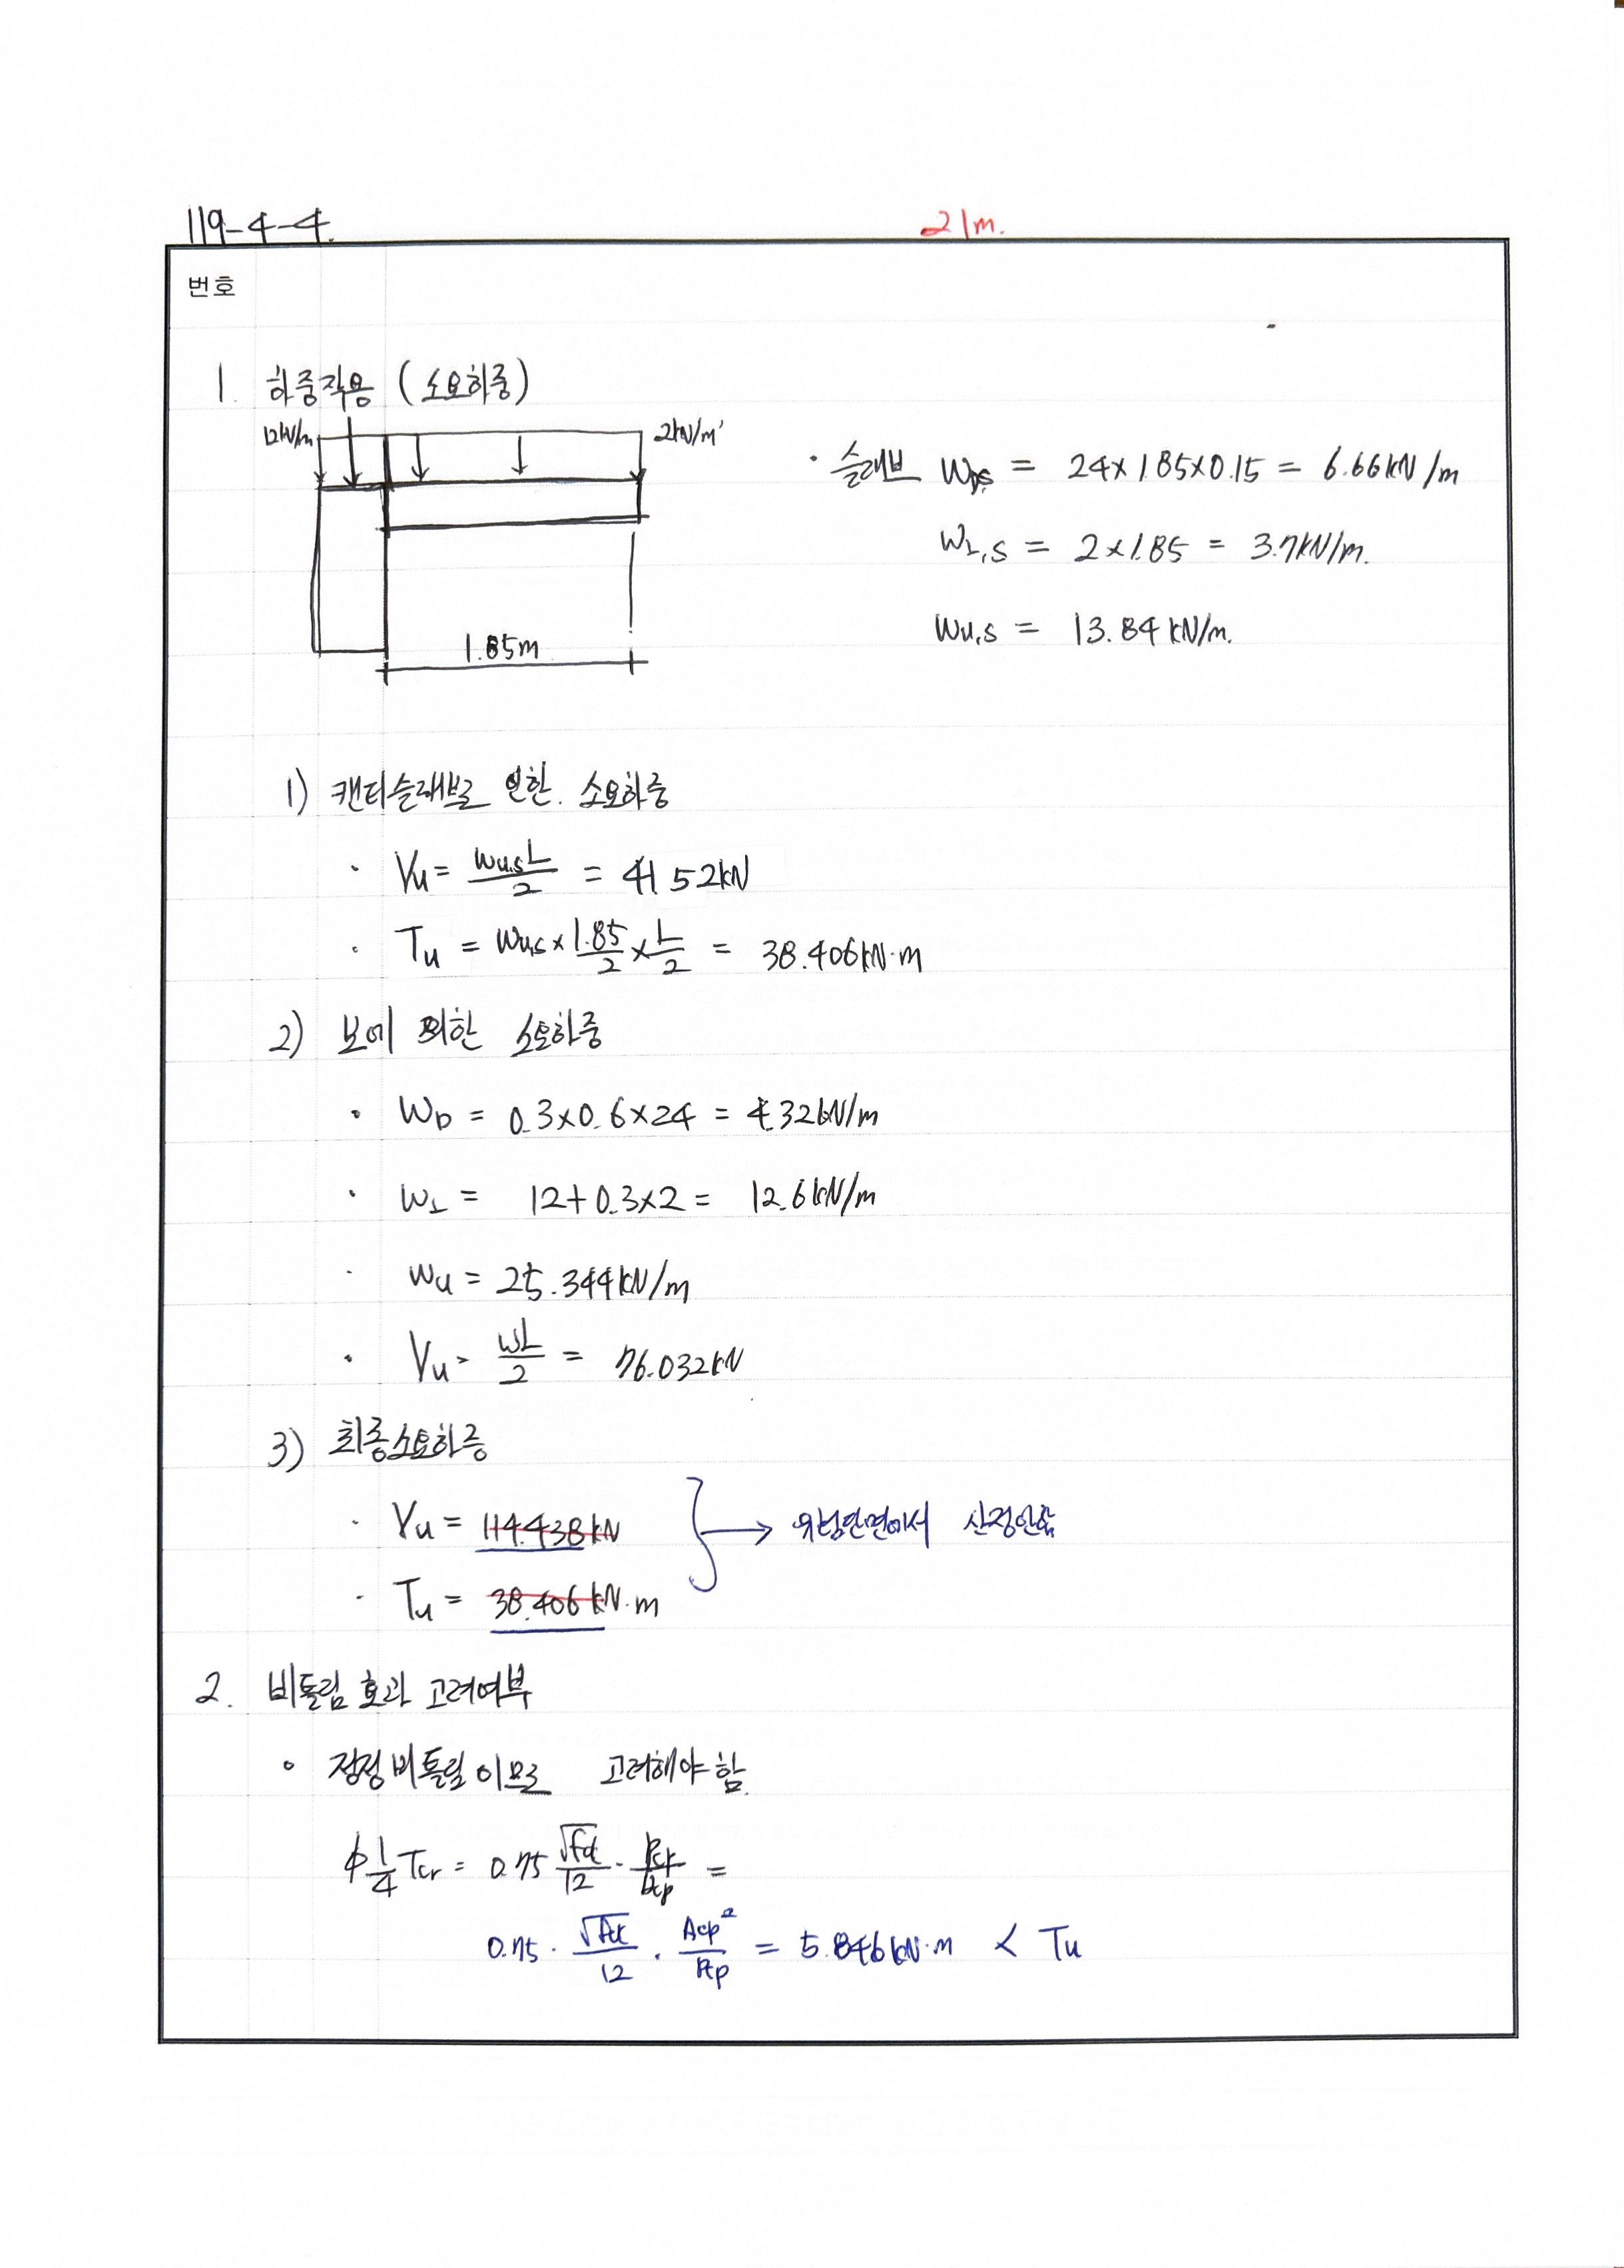 119-4-4.
21m.
번호
1. 하중작용 (소요하중)
12kN/m
2kN/m²
1.85m
· 슬래브 WD,S = 24×1.85×0.15 = 6.66kN/m
WL,S = 2×1.85 = 3.7kN/m.
Wu,s = 13.84kN/m.
1) 캔티슬래브로 인한 소요하중
· Vu = Wu,sL/2 = 41.52kN
· Tu = Wu,s × 1.85/2 × L/2 = 38.406kN·m
2) 보에 의한 소요하중
· WD = 0.3×0.6×24 = 4.32kN/m
· WL = 12+0.3×2 = 12.6kN/m
· Wu = 25.344kN/m
· Vu = WL/2 = 76.032kN
3) 최종소요하중
· Vu = 114.438kN
· Tu = 38.406kN·m
→ 위험단면에서 산정안함
2. 비틀림 효과 고려여부
· 정정 비틀림 이므로 고려해야 함.
φ 1/4 Tcr = 0.75 √fck/12 · =
0.75 · √fck/12 · Acp²/Pcp = 5.846kN·m < Tu